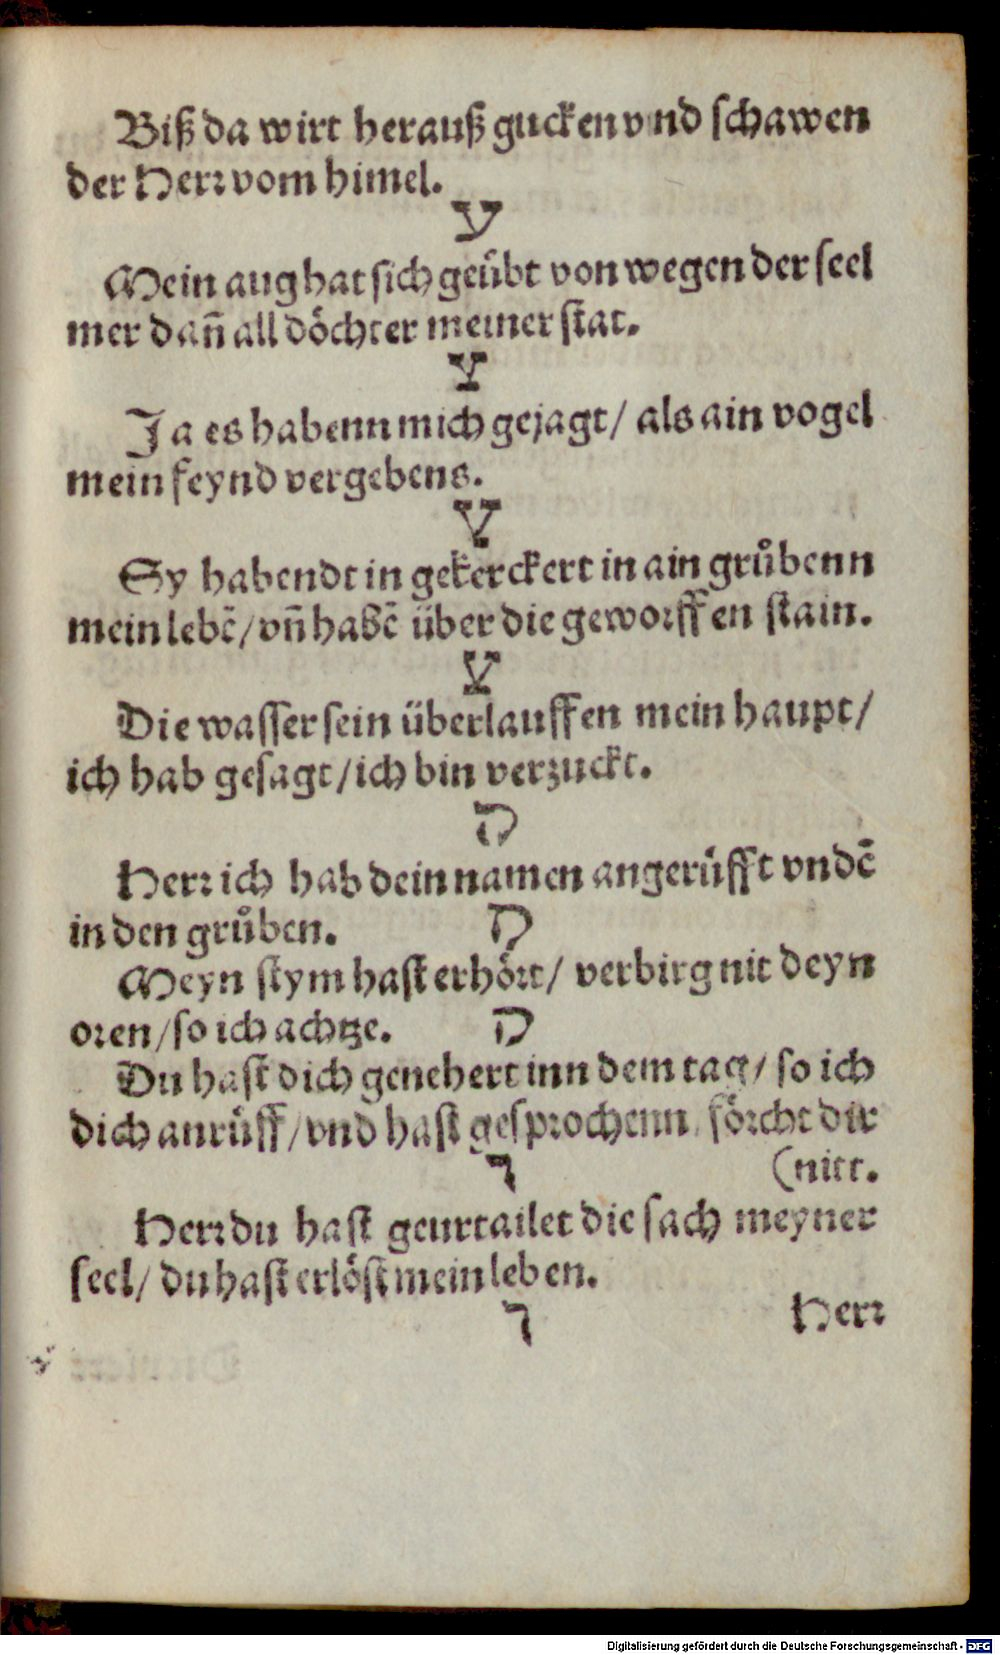 Biß da wirt herauß gucken vnd schawen
der Herr vom himel.
ע
Mein aug hat sich geübt von wegen der seel
mer dañ all döchter meiner stat.
צ
Ja es habenn mich gejagt/ als ain vogel
mein feynd vergebens.
צ
Sy habendt in gekerckert in ain grůbenn
mein lebē/ vñ habē über die geworffen stain.
צ
Die wasser sein überlauffen mein haupt/
ich hab gesagt/ ich bin verzuckt.
ק
Herr ich hab dein namen angerüfft vndē
in den grůben. ק
Meyn stym hast erhört/ verbirg nit deyn
oren/ so ich achtze. ק
Du hast dich genehert inn dem tag/ so ich
dich anrüff/ vnd hast gesprochenn, förcht dir
(nitt.
ר
Herr du hast geurtailet die sach meyner
seel/ du hast erlöst mein leben.
ר Herr
Digitalisierung gefördert durch die Deutsche Forschungsgemeinschaft - DFG